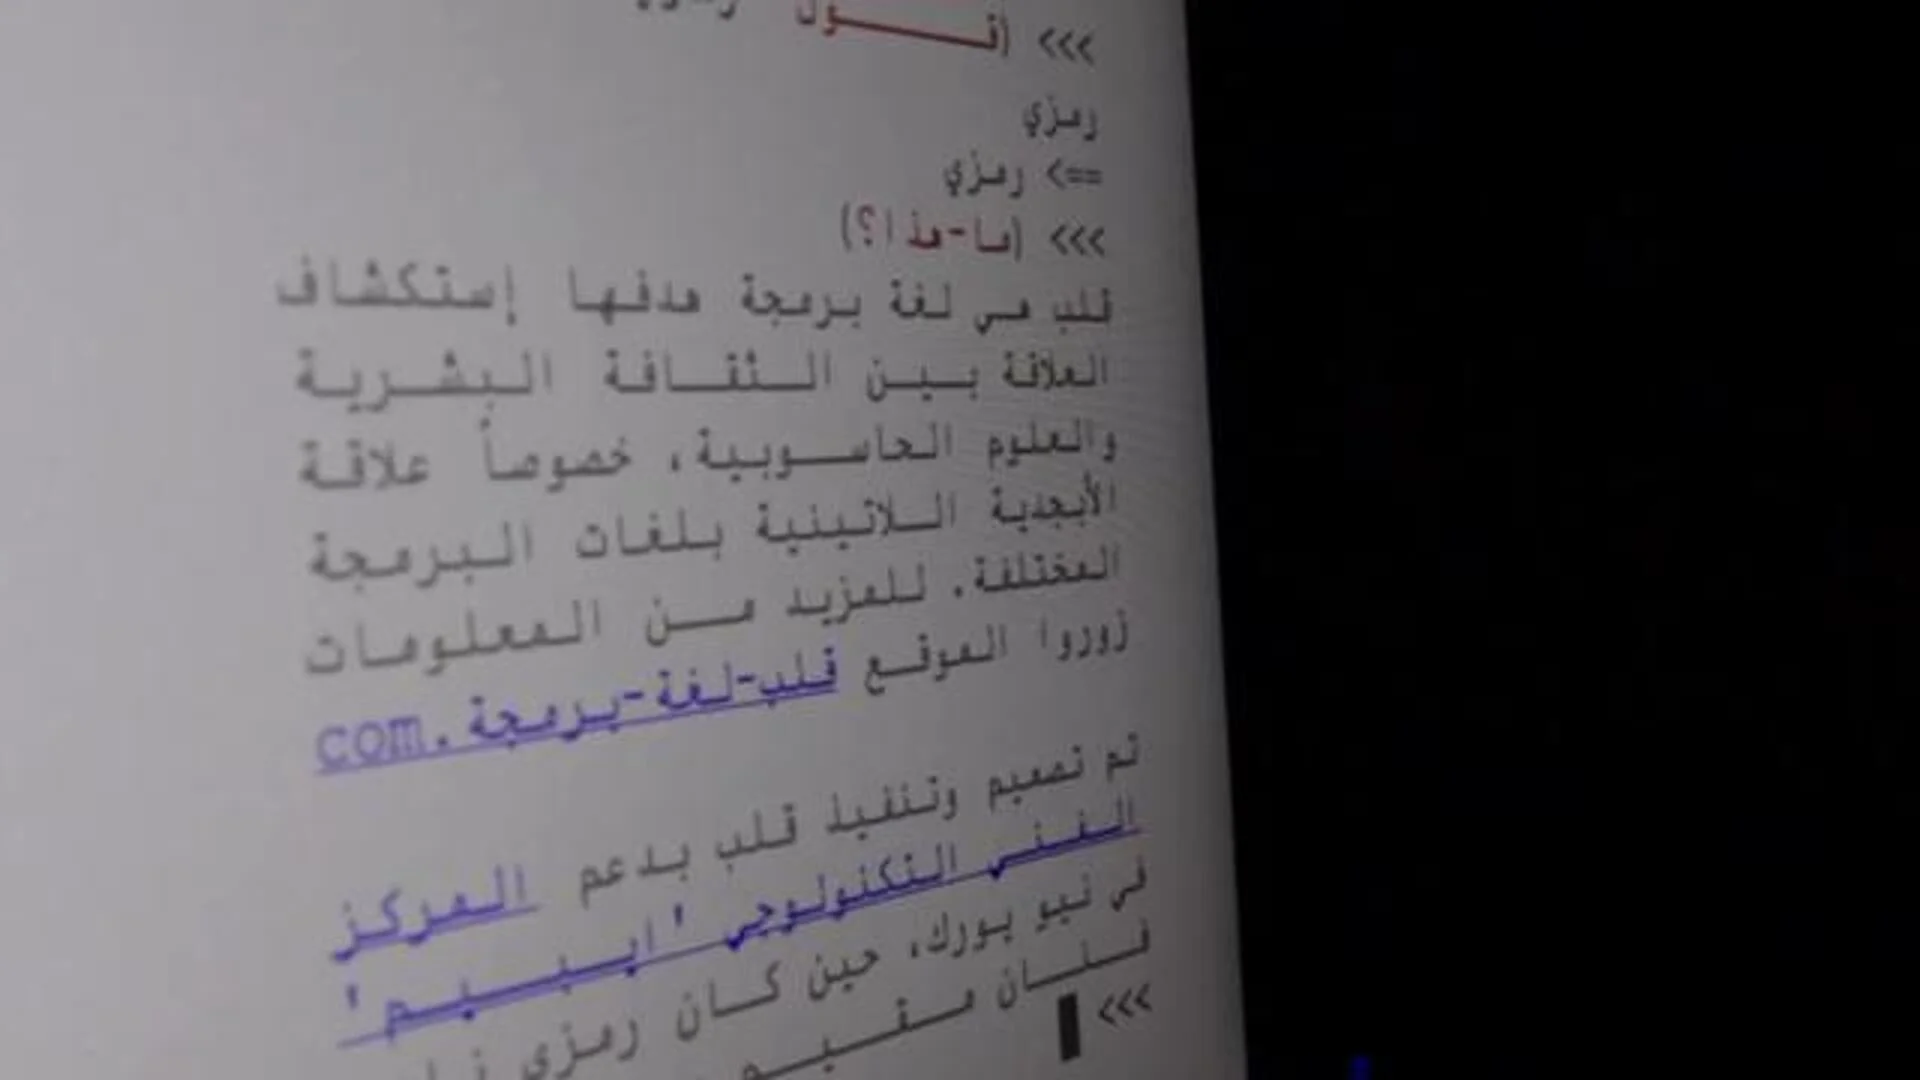 >>> (قول
رمزي
==> رمزي
>>> (ما-هذا؟)
قلب هي لغة برمجة هدفها إستكشاف
العلاقة بين الثقافة البشرية
والعلوم الحاسوبية، خصوصاً علاقة
الأبجدية اللاتينية بلغات البرمجة
المختلفة. للمزيد من المعلومات
زوروا الموقع قلب-لغة-برمجة.com
تم تصميم وتنفيذ قلب بدعم المركز
الفني التكنولوجي 'ايبيم'
في نيو يورك، حين كان رمزي
فنان مقيم
>>>